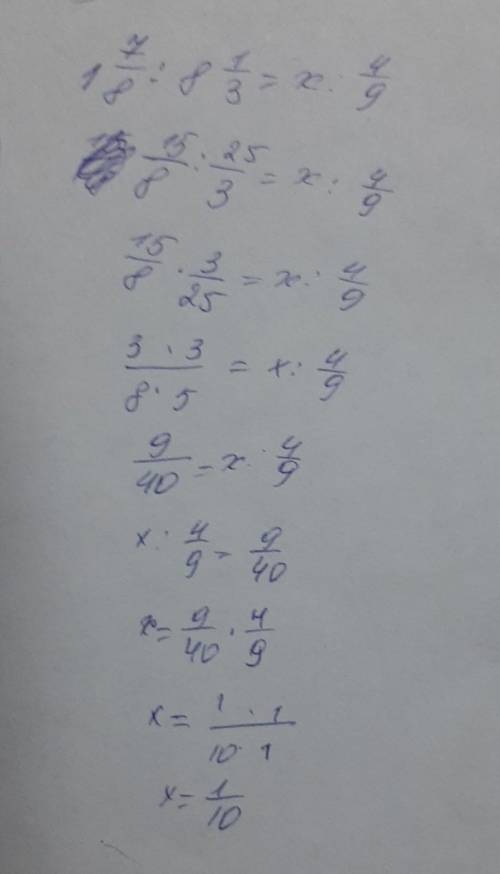 1 7/8 : 8 1/3 = x : 4/9
15/8 : 25/3 = x : 4/9
15/8 · 3/25 = x : 4/9
3 · 3 / 8 · 5 = x : 4/9
9/40 = x : 4/9
x : 4/9 = 9/40
x = 9/40 · 4/9
x = 1 · 1 / 10 · 1
x = 1/10